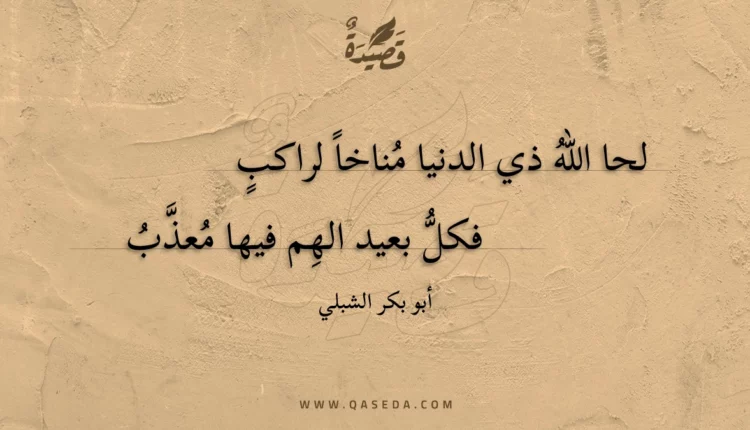 قَصِيْدَةٌ
لحا اللهُ ذي الدنيا مُناخاً لراكبٍ
فكلُّ بعيد الهِم فيها مُعذَّبُ
أبو بكر الشبلي
WWW.QASEDA.COM